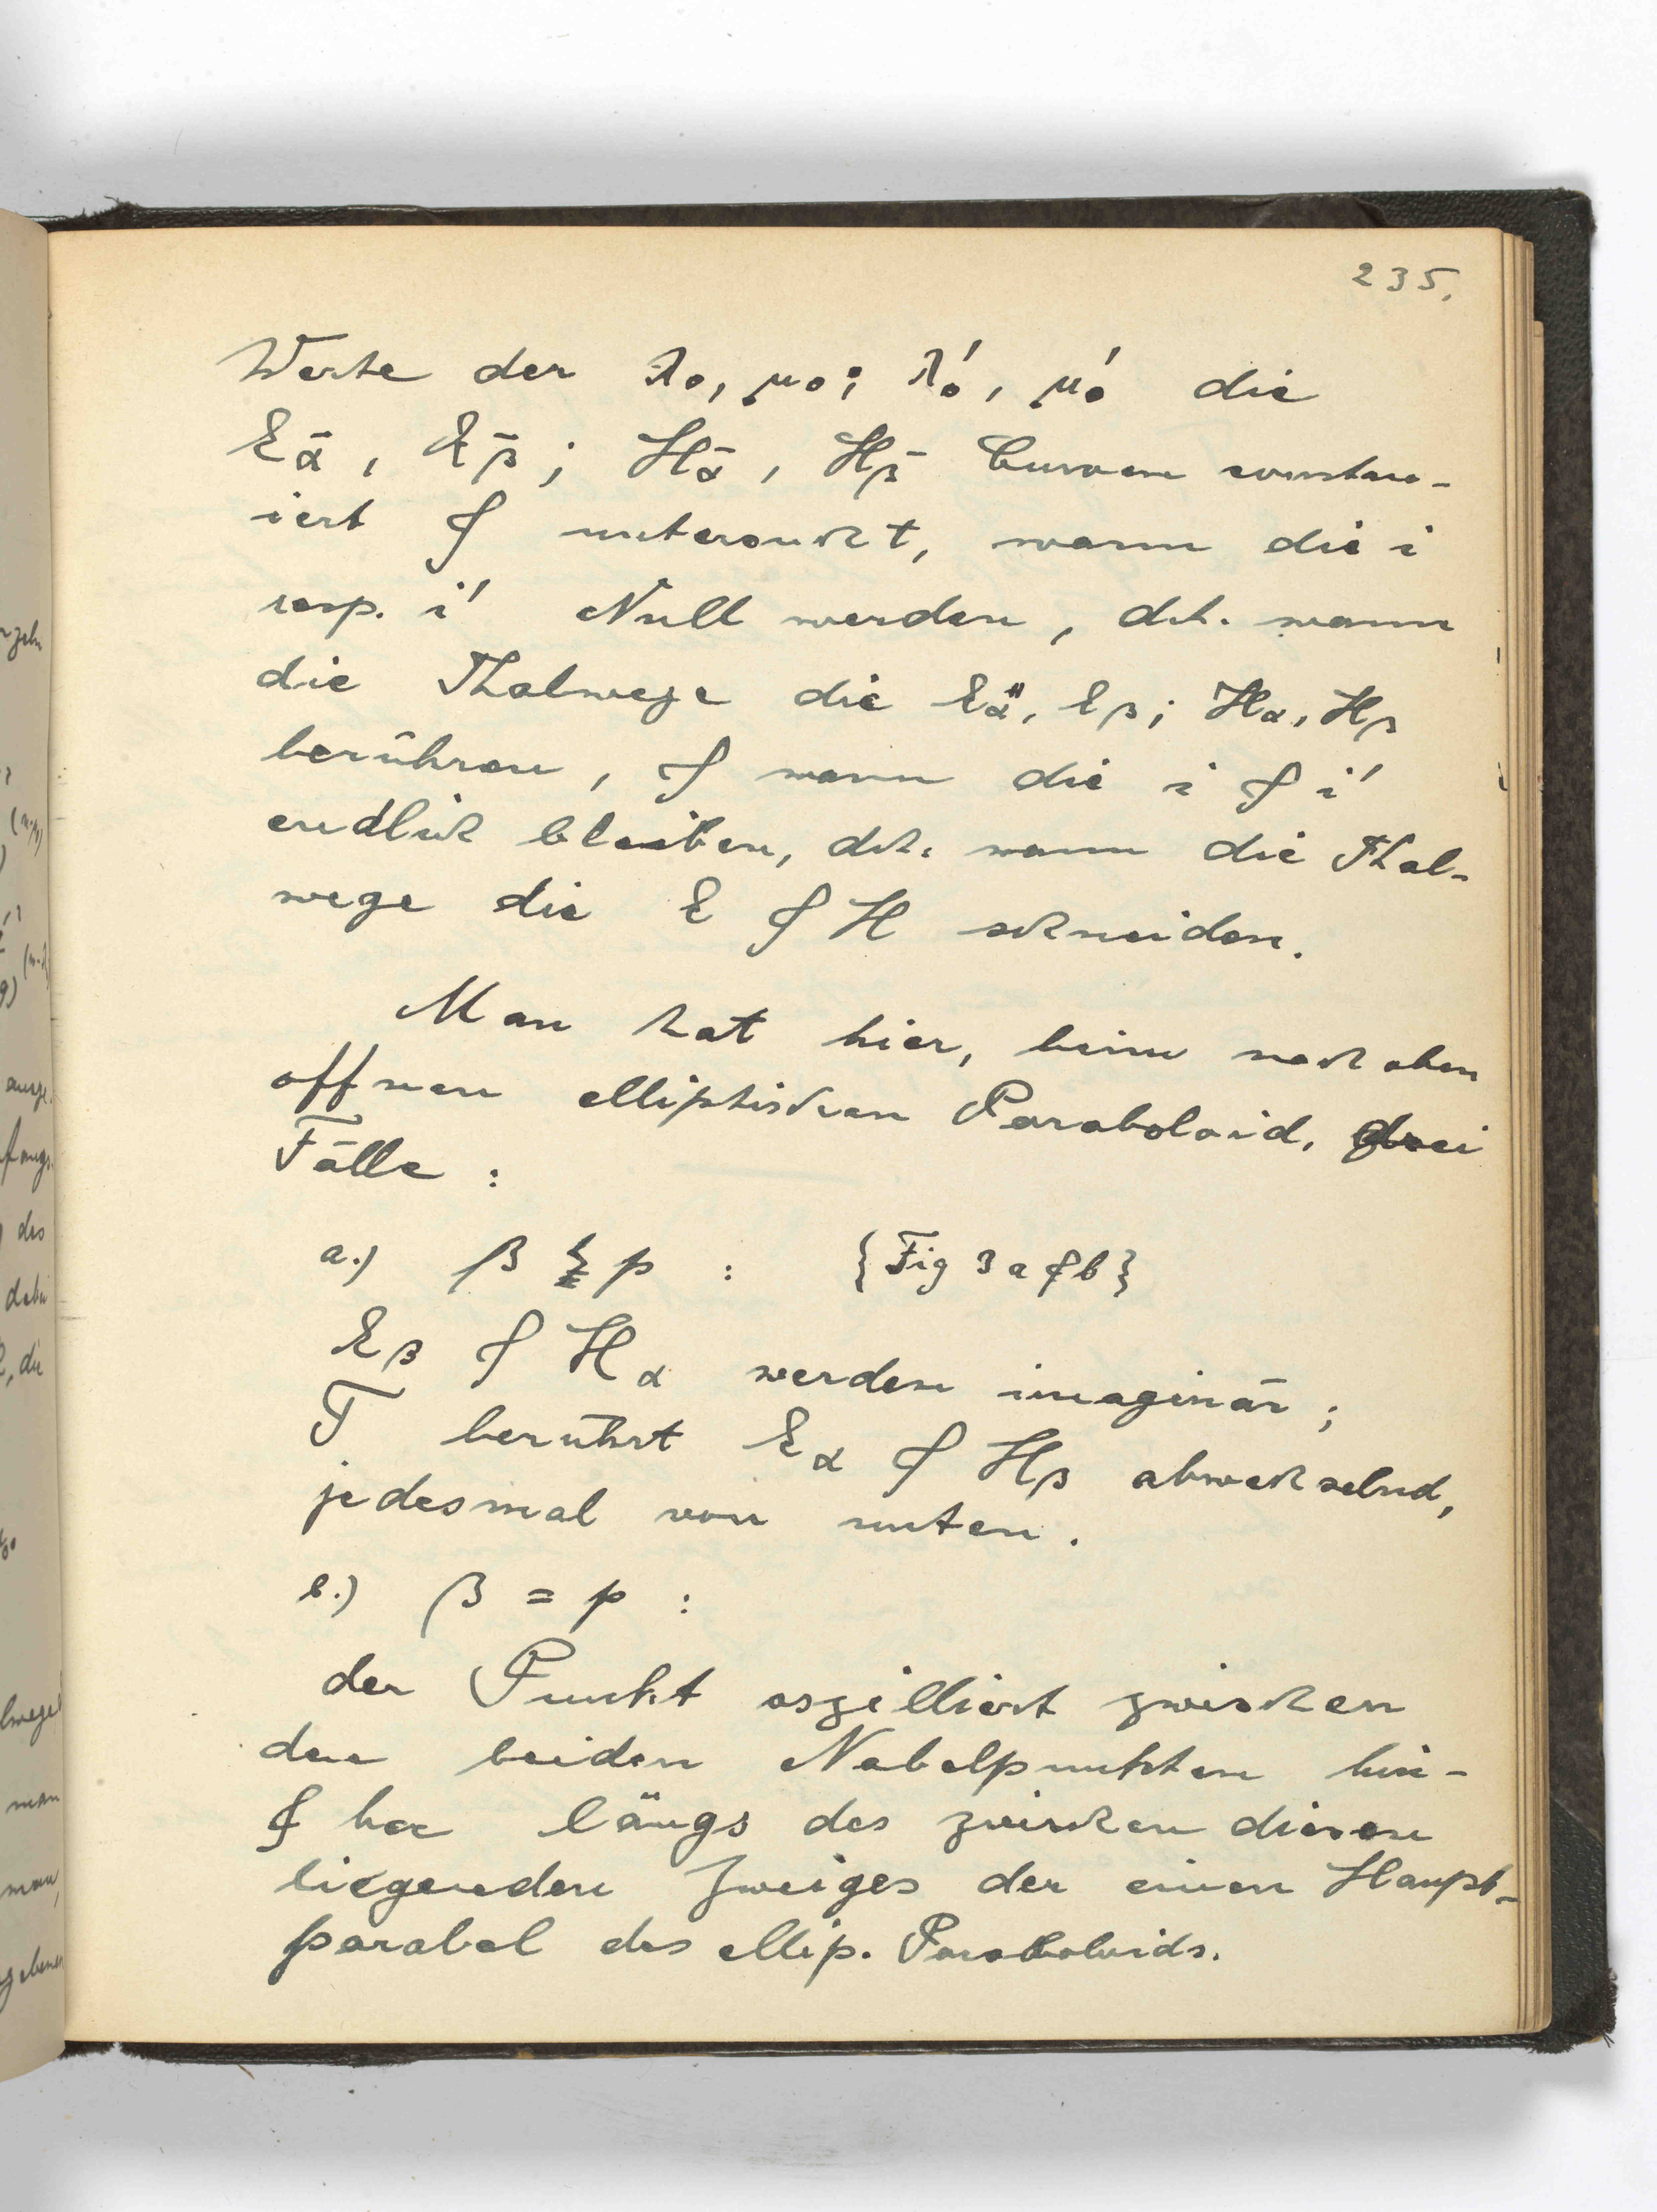 235.
Werte der λ₀, μ₀; λ₀', μ₀' die
E_α-, E_β-; H_α-, H_β- Curven constru-
iert & untersucht, wann die i
resp. i' Null werden, d.h. wann
die Thalwege die E_α, E_β; H_α, H_β
berühren, & wann die i & i'
endlich bleiben, d.h. wann die Thal-
wege die E & H schneiden.
Man hat hier, beim nach oben
offnen elliptischen Paraboloid, drei
Fälle:
a.) β p : {Fig 3 a & b}
E_β & H_α werden imaginär;
T berührt E_α & H_β abwechselnd,
jedesmal von unten.
b.) β = p :
der Punkt oszilliert zwischen
den beiden Nabelpunkten hin-
& her längs des zwischen diesen
liegenden Zweiges der einen Haupt-
parabel des ellip. Paraboloids.